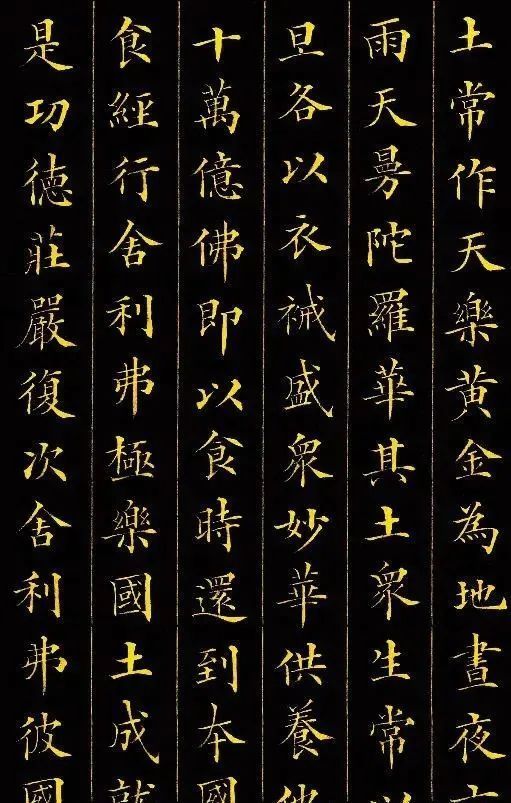 土常作天樂黃金為地晝夜
雨天曼陀羅華其土衆生常以
旦各以衣祴盛衆妙華供養他
十萬億佛即以食時還到本國
食經行舍利弗極樂國土成就
是功德莊嚴復次舍利弗彼國